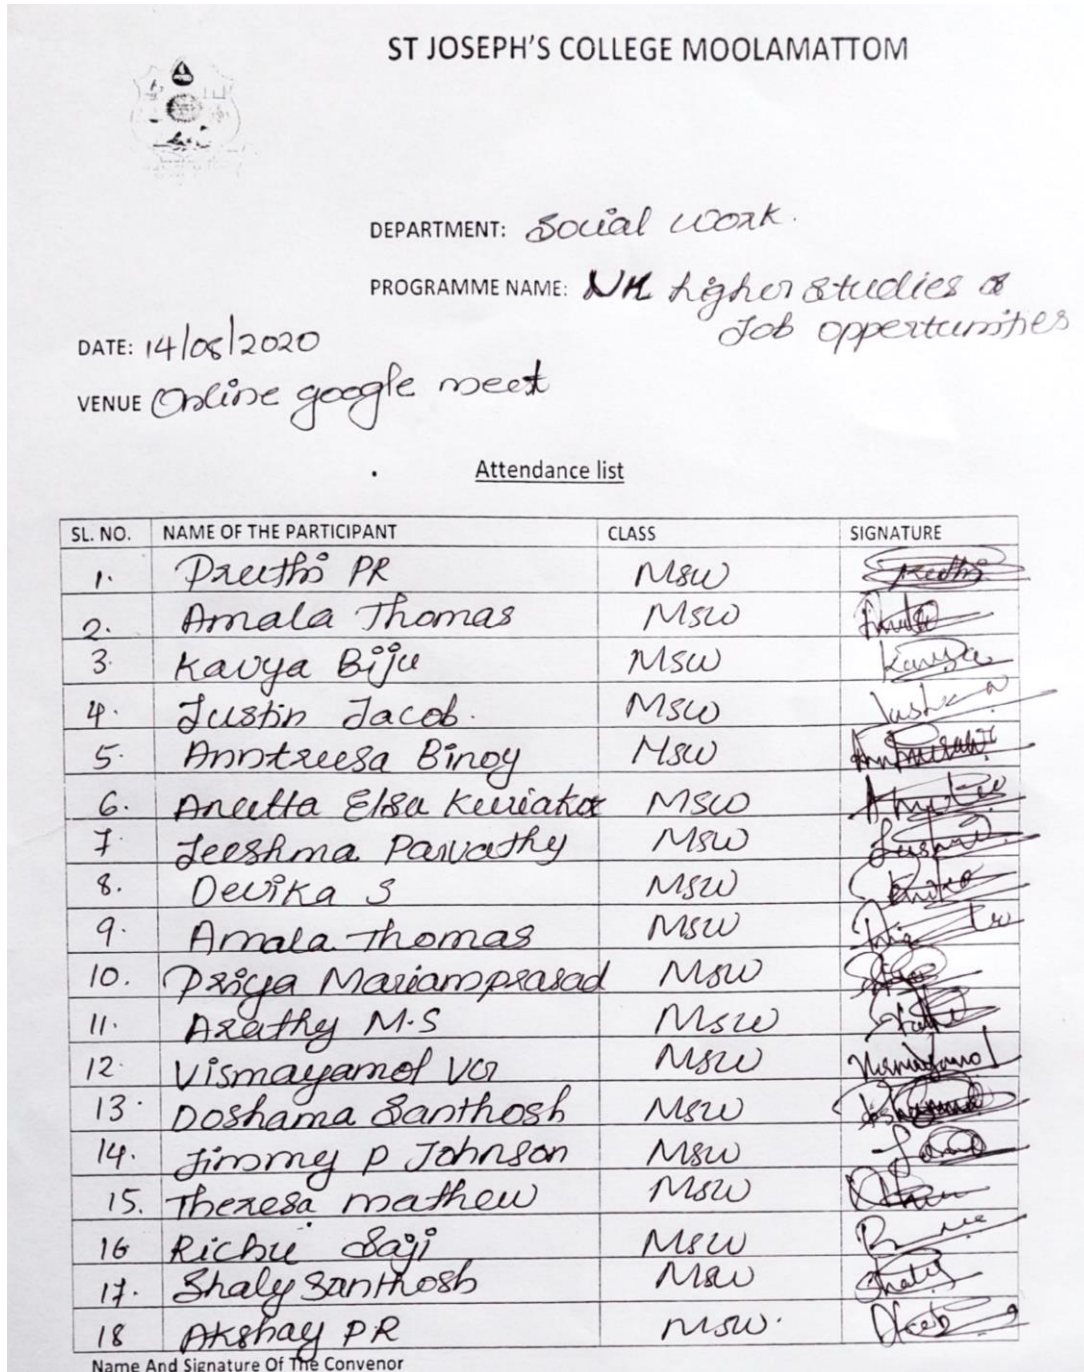 ST JOSEPH'S COLLEGE MOOLAMATTOM
DEPARTMENT: Social work.
PROGRAMME NAME: higher studies &
Job oppertunities
DATE: 14/08/2020
VENUE Online google meet
Attendance list
SL. NO. NAME OF THE PARTICIPANT CLASS SIGNATURE
1. Preethi PR MSW Preethi
2. Amala Thomas MSW
3. Kavya Biju MSW Kavya
4. Justin Jacob. MSW Justin
5. Anntreesa Binoy MSW
6. Aneetta Elsa Kuriakose MSW
7. Jeeshma Parvathy MSW
8. Devika S MSW
9. Amala Thomas MSW
10. Priya Mariamprasad MSW
11. Arathy M.S MSW
12. Vismayamol VG MSW Vismayamol
13. Doshama Santhosh MSW
14. Jimmy P Johnson MSW
15. Theresa mathew MSW
16 Richu Saji MSW
17. Shaly Santhosh MSW Shaly
18 Akshay PR MSW.
Name And Signature Of The Convenor